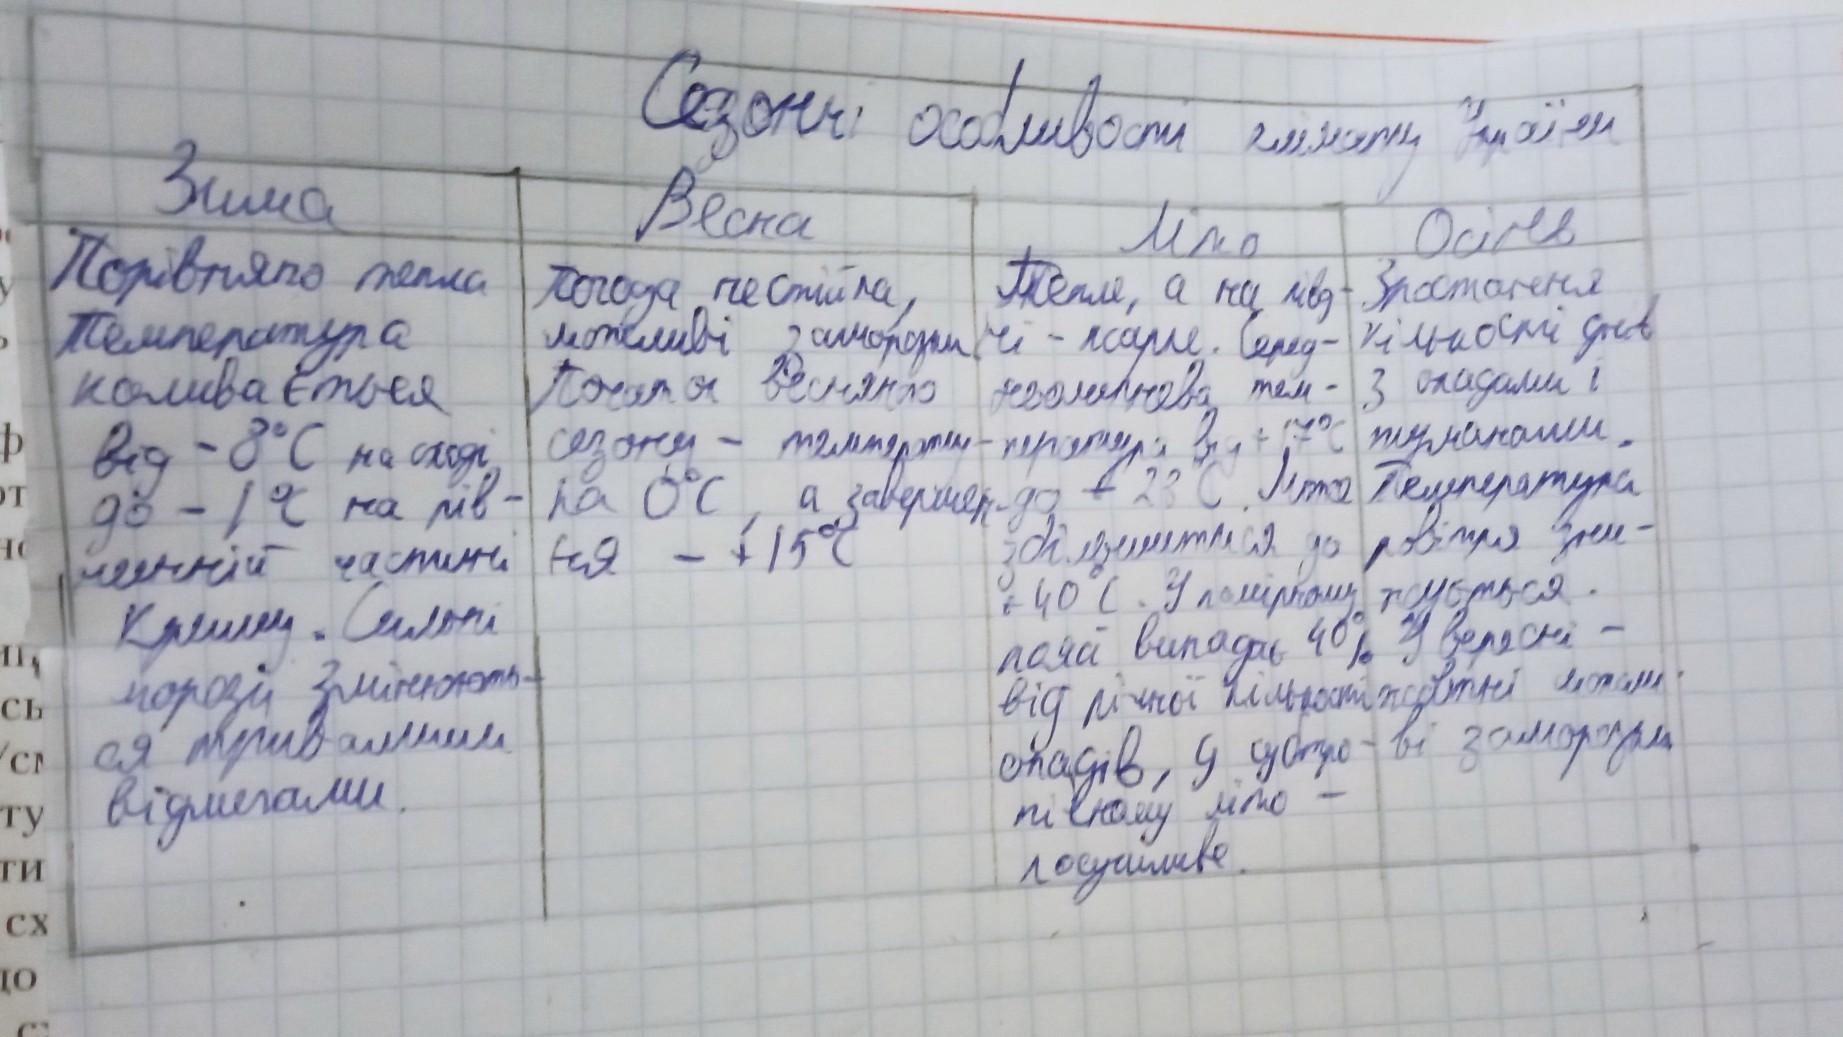 Сезонні особливості клімату України
Зима
Порівняно тепла
Температура
коливається
від -8°C на сході
до -1°C на пів-
денній частині
Криму. Сильні
морози змінюють-
ся тривалими
відлигами.
Весна
Погода нестійка,
можливі заморозки
Початок весняного
сезону - температу-
ра 0°C, а завершен-
ня - +15°C
Літо
Тепле, а на півд-
ні - жарке. Серед-
ньолипнева тем-
пература від +17°C
до + 23°C. Може
збільшитися до
+40°C. У помірному
поясі випадає 40%
від річної кількості
опадів, у субтро-
пічному літо -
посушливе.
Осінь
Зростання
кількості днів
з опадами і
туманами.
Температура
повітря зни-
жується.
У вересні -
жовтні можли-
ві заморозки
ф
от
но
иц
сь
ту
ти
сх
до